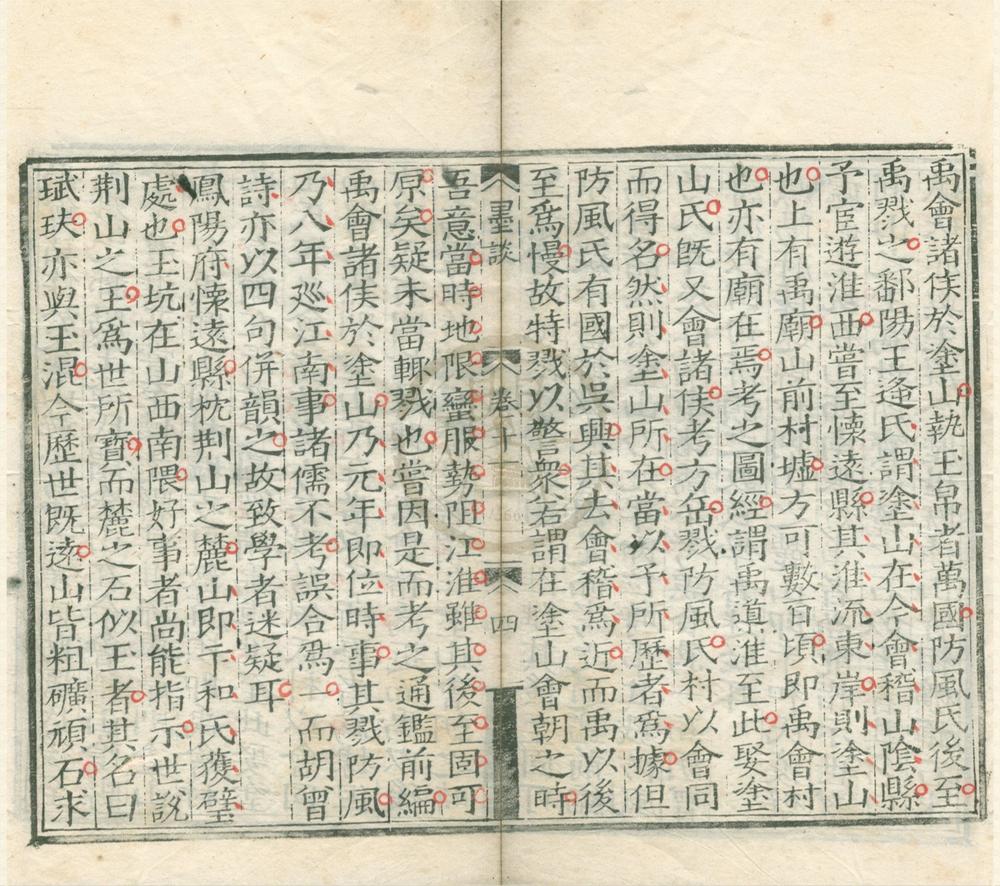 禹會諸侯於塗山執玉帛者萬國防風氏後至
禹戮之鄱陽王逢氏謂塗山在今會稽山陰縣
予宦遊淮西嘗至懷遠縣其淮流東岸則塗山
也上有禹廟山前村墟方可數百頃即禹會村
也亦有廟在焉考之圖經謂禹導淮至此娶塗
山氏旣又會諸侯考方岳戮防風氏村以會同
而得名然則塗山所在當以予所歷者爲據但
防風氏有國於吳興其去會稽爲近而禹以後
至爲慢故特戮以警衆右謂在塗山會朝之時
墨談 卷十一 四
吾意當時地限蠻服勢阻江淮雖其後至固可
原矣疑未當輒戮也嘗因是而考之通鑑前編
禹會諸侯於塗山乃元年即位時事其戮防風
乃八年廵江南事諸儒不考誤合爲一而胡曾
詩亦以四句併韻之故致學者迷疑耳
鳳陽府懷遠縣枕荆山之麓山即卞和氏獲璧
處也玉坑在山西南隈好事者尚能指示世說
荆山之玉爲世所寳而麓之石似玉者其名曰
珷玞亦與玉混今歷世既遠山皆粗礦頑石求